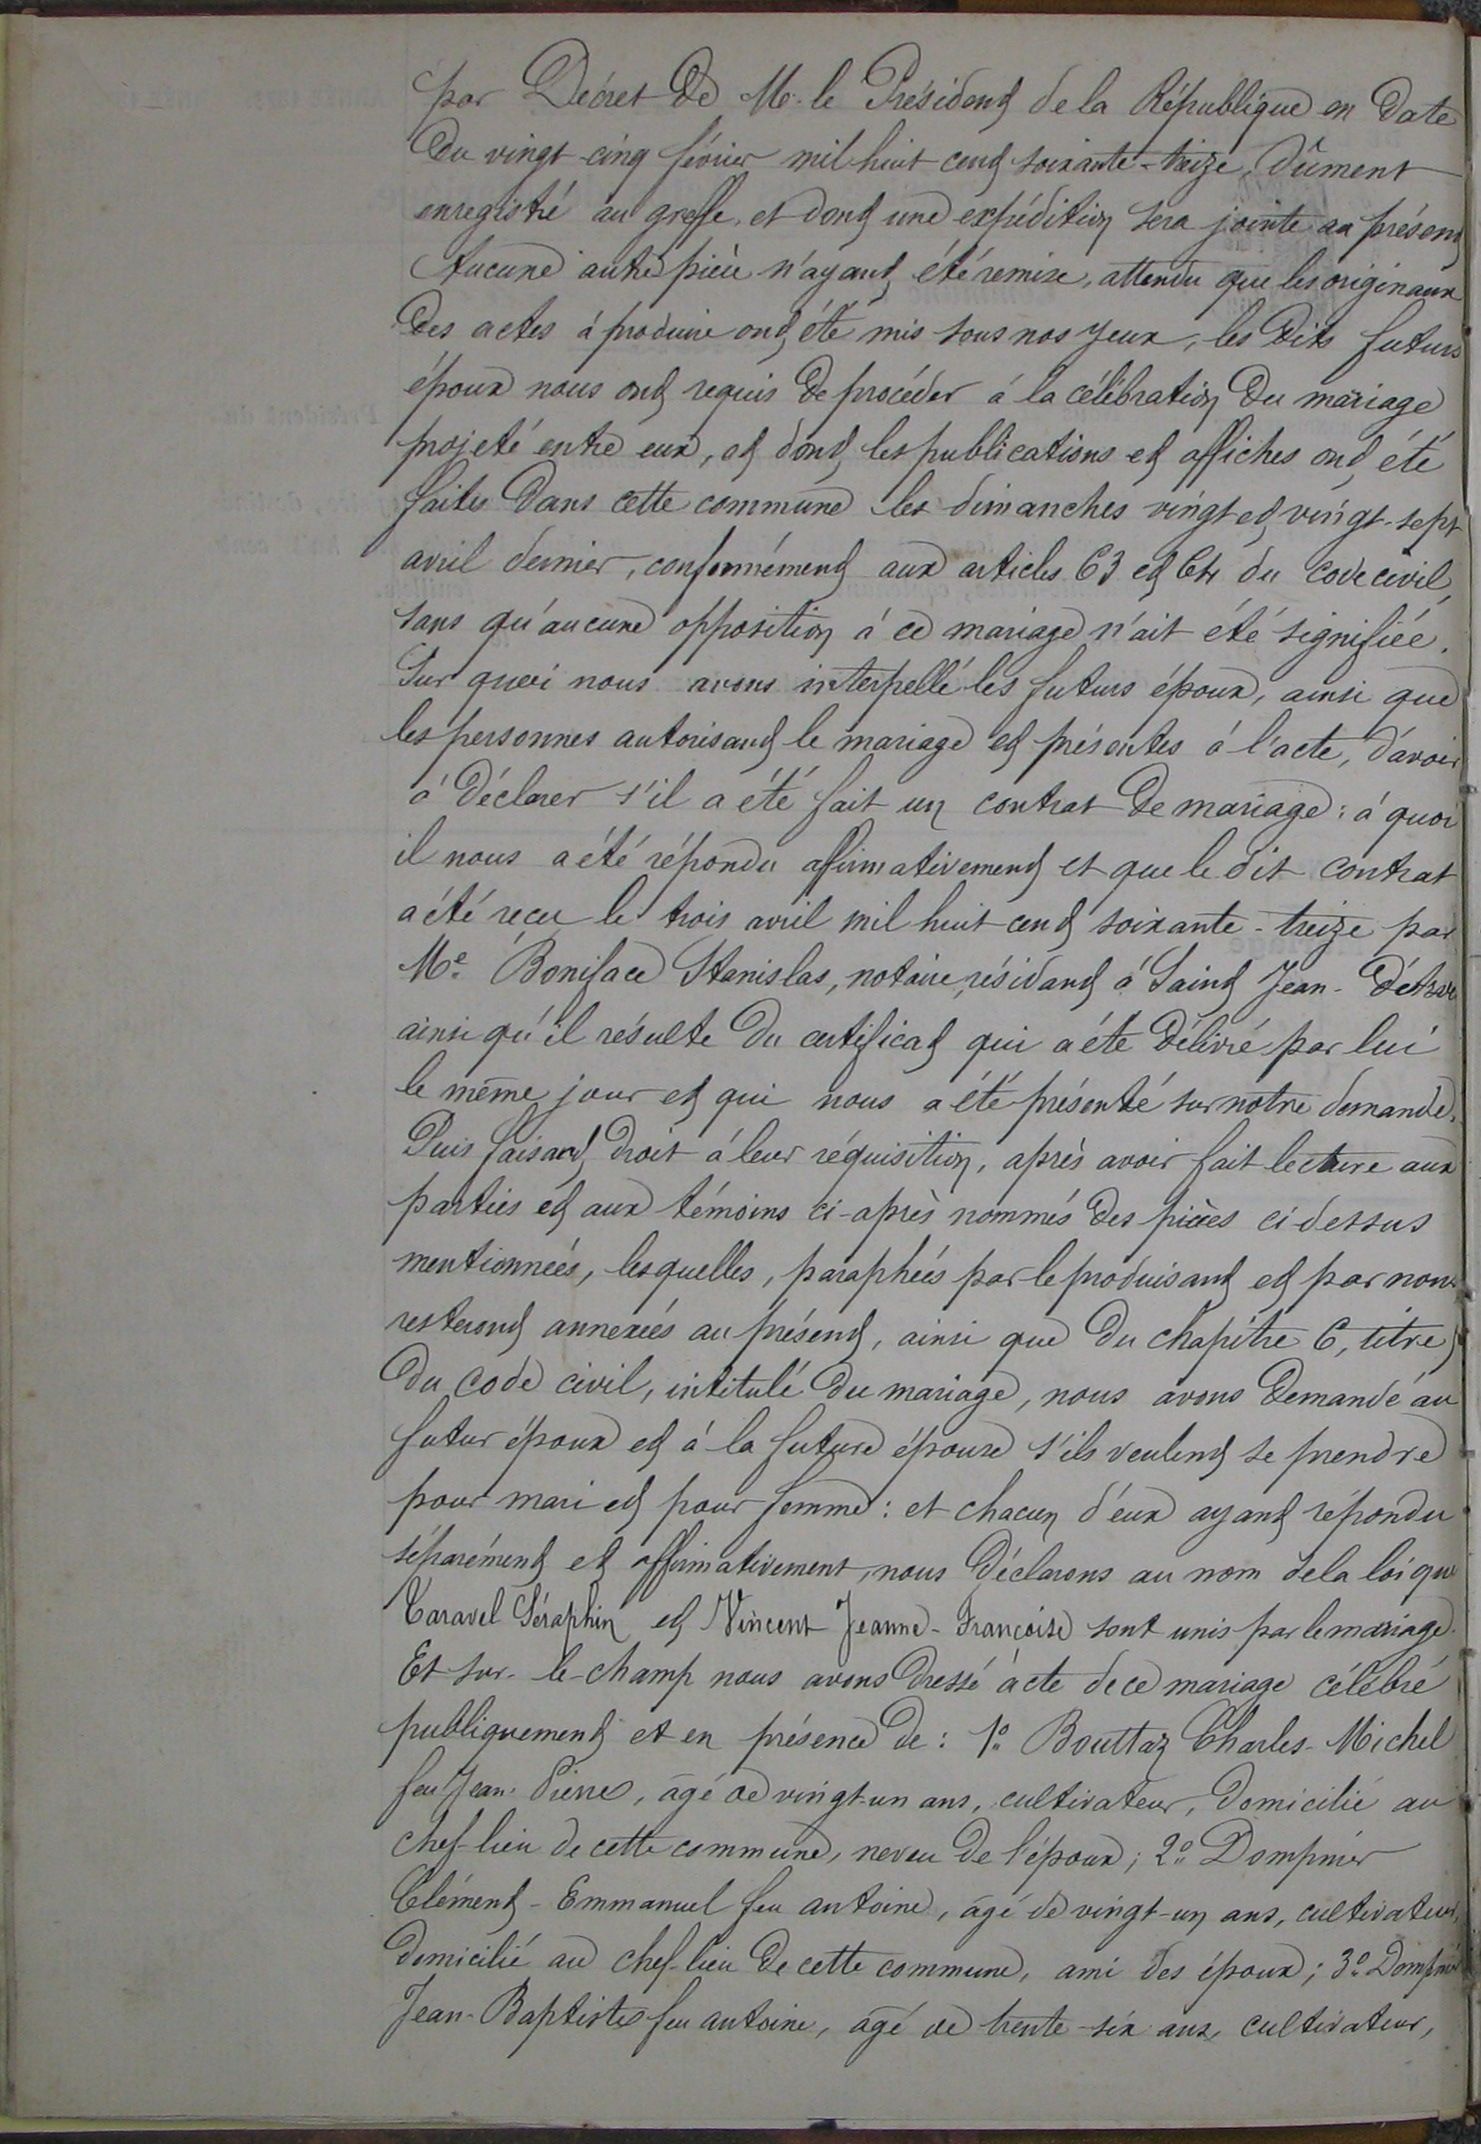 par Décret de Mr. le Président de la République en date
du vingt-cinq février mil huit cent soixante-treize, dûment
enregistré au greffe, et dont une expédition sera jointe au présent
Aucune autre pièce n'ayant été remise, attendu que les originaux
des actes à produire ont été mis sous nos yeux, les dits futurs
époux nous ont requis de procéder à la célébration du mariage
projeté entre eux, et dont les publications et affiches ont été
faites dans cette commune les dimanches vingt et vingt-sept
avril dernier, conformément aux articles 63 et 64 du code civil,
sans qu'aucune opposition à ce mariage n'ait été signifiée.
Sur quoi nous avons interpellé les futurs époux, ainsi que
les personnes autorisant le mariage et présentes à l'acte, d'avoir
à déclarer s'il a été fait un contrat de mariage : à quoi
il nous a été répondu affirmativement et que le dit contrat
a été reçu le trois avril mil huit cent soixante-treize par
Me. Boniface Stanislas, notaire, résidant à Saint Jean-
ainsi qu'il résulte du certificat qui a été délivré par lui
le même jour et qui nous a été présenté sur notre demande.
Puis faisant droit à leur réquisition, après avoir fait lecture aux
parties et aux témoins ci-après nommés des pièces ci-dessus
mentionnées, lesquelles, paraphées par le produisant et par nous
resteront annexées au présent, ainsi que du chapitre 6, titre
du code civil, intitulé du mariage, nous avons demandé au
futur époux et à la future épouse s'ils veulent se prendre
pour mari et pour femme : et chacun d'eux ayant répondu
séparément et affirmativement, nous déclarons au nom de la loi que
Taravel Séraphin et Vincent Jeanne-Françoise sont unis par le mariage.
Et sur-le-champ nous avons dressé acte de ce mariage célébré
publiquement et en présence de : 1° Bouttaz Charles-Michel
feu Jean-Pierre, âgé de vingt-un ans, cultivateur, domicilié au
chef-lieu de cette commune, neveu de l'époux ; 2° Dompnier
Clément-Emmanuel feu antoine, âgé de vingt-un ans, cultivateur,
domicilié au chef-lieu de cette commune, ami des époux ; 3° Dompnier
Jean-Baptiste feu antoine, âgé de trente-six ans, cultivateur,